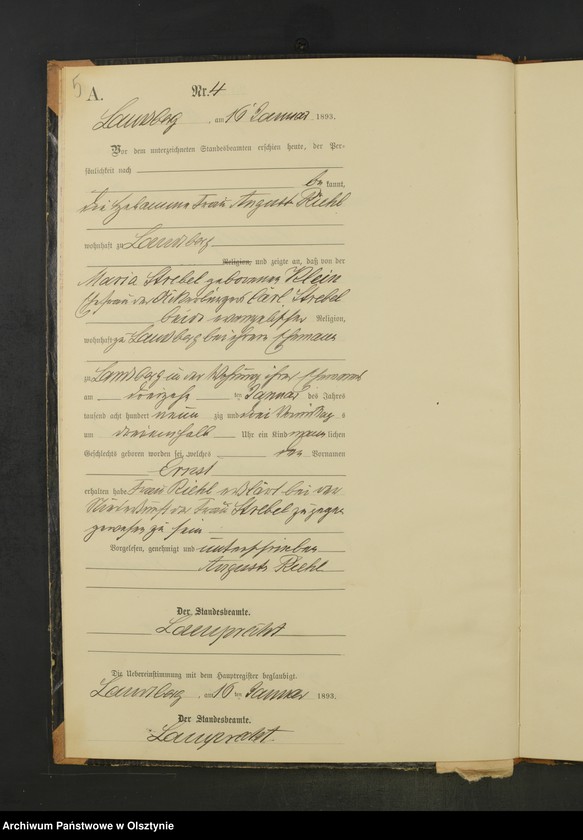 5
A.
Nr. 4
Landsberg, am 16 Januar 1893.
Vor dem unterzeichneten Standesbeamten erschien heute, der Per-
sönlichkeit nach
be kannt,
die Hebamme Frau Auguste Riehl
wohnhaft zu Landsberg
Religion, und zeigte an, daß von der
Maria Strebel geborenen Klein
Ehefrau des Ackerbürgers Carl Strebel
beide evangelischer Religion,
wohnhaft zu Landsberg bei ihrem Ehemann
zu Landsberg in der Wohnung ihres Ehemanns
am dreizehn ten Januar des Jahres
tausend acht hundert neun zig und drei Vormittag s
um dreieinhalb Uhr ein Kind männ lichen
Geschlechts geboren worden sei, welches den Vornamen
Ernst
erhalten habe. Frau Riehl erklärt bei der
Niederkunft der Frau Strebel zugegen
gewesen zu sein
Vorgelesen, genehmigt und unterschrieben
Auguste Riehl
Der Standesbeamte.
Lamprecht
Die Uebereinstimmung mit dem Hauptregister beglaubigt.
Landsberg, am 16 ten Januar 1893.
Der Standesbeamte.
Lamprecht
Archiwum Państwowe w Olsztynie